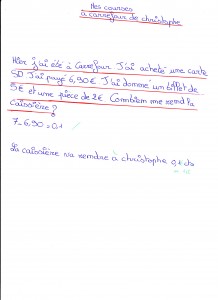 Mes courses
à carrefour de christophe
Hier j'ai été à Carrefour J'ai acheté une carte
SD J'ai payé 6,90€ J'ai donné un billet de
5€ et une pièce de 2€. Combien me rend la
caissière ?
7-6,90=0,1
La caissière va rendre à christophe 0,1 cts